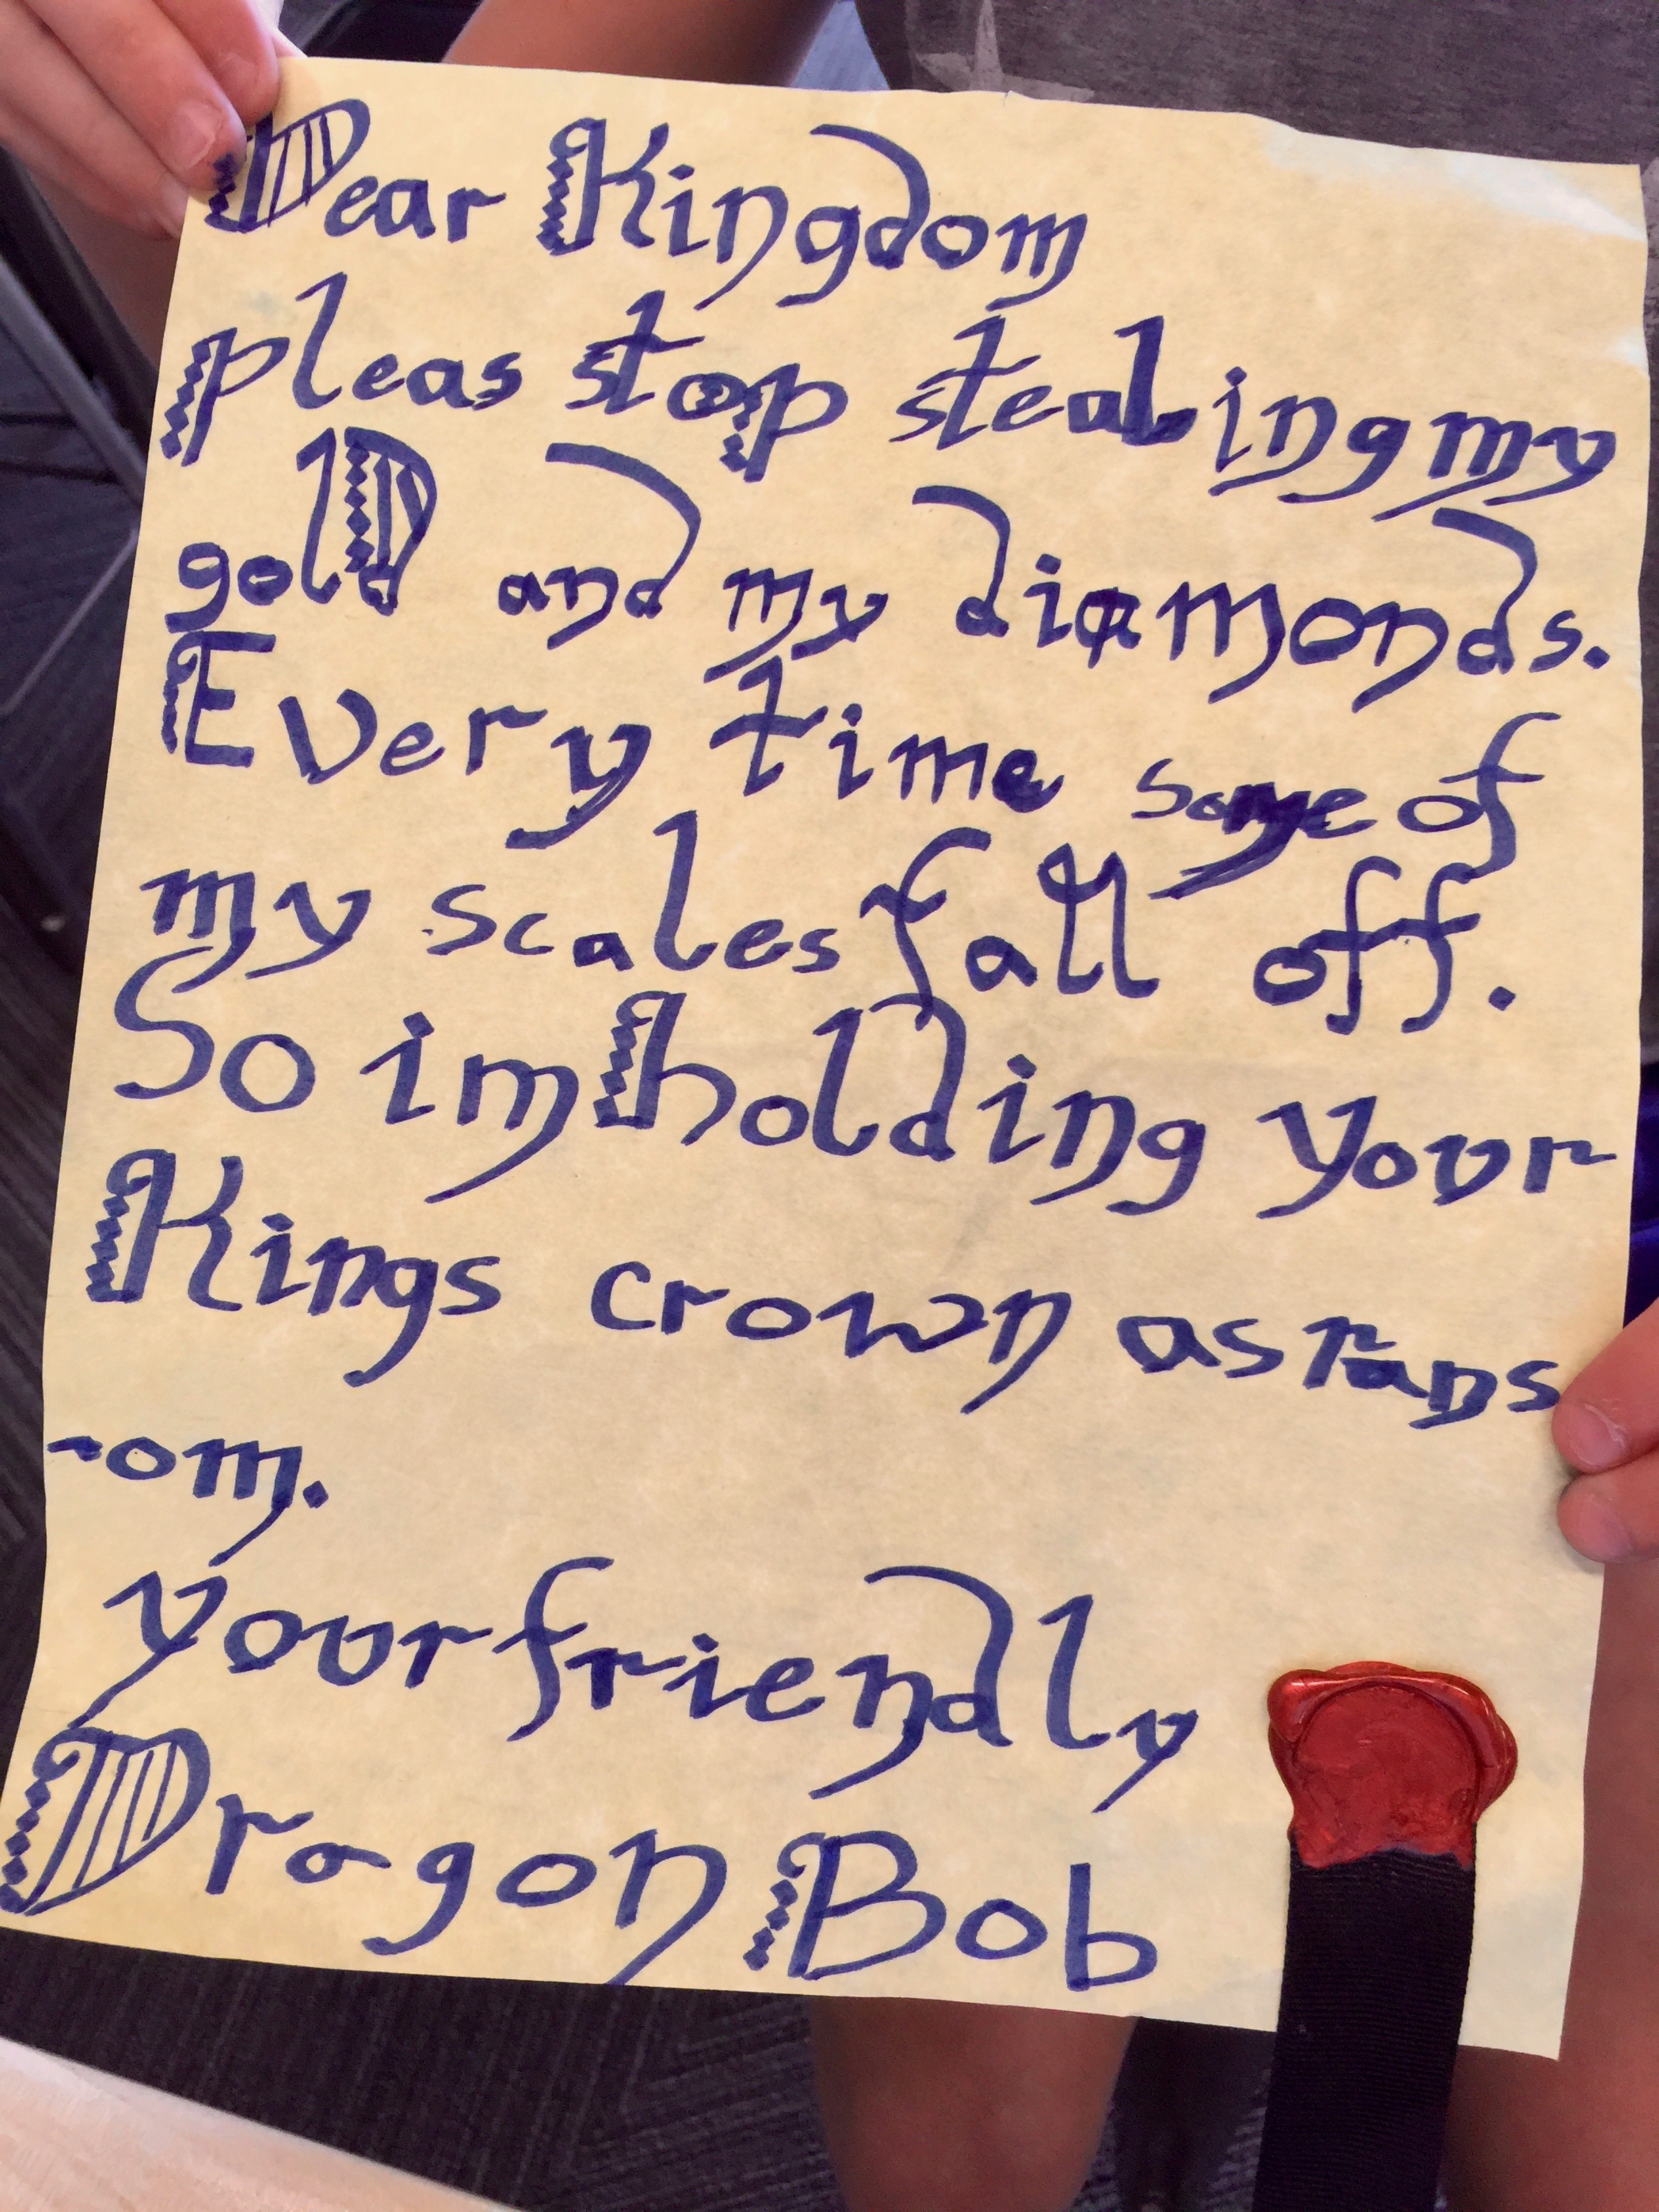 Dear Kingdom
pleas stop stealing my
golD and my diamonds.
Every time some of
my scales fall off.
So im holding your
Kings crown as rans
-om.
your friendly
Dragon Bob